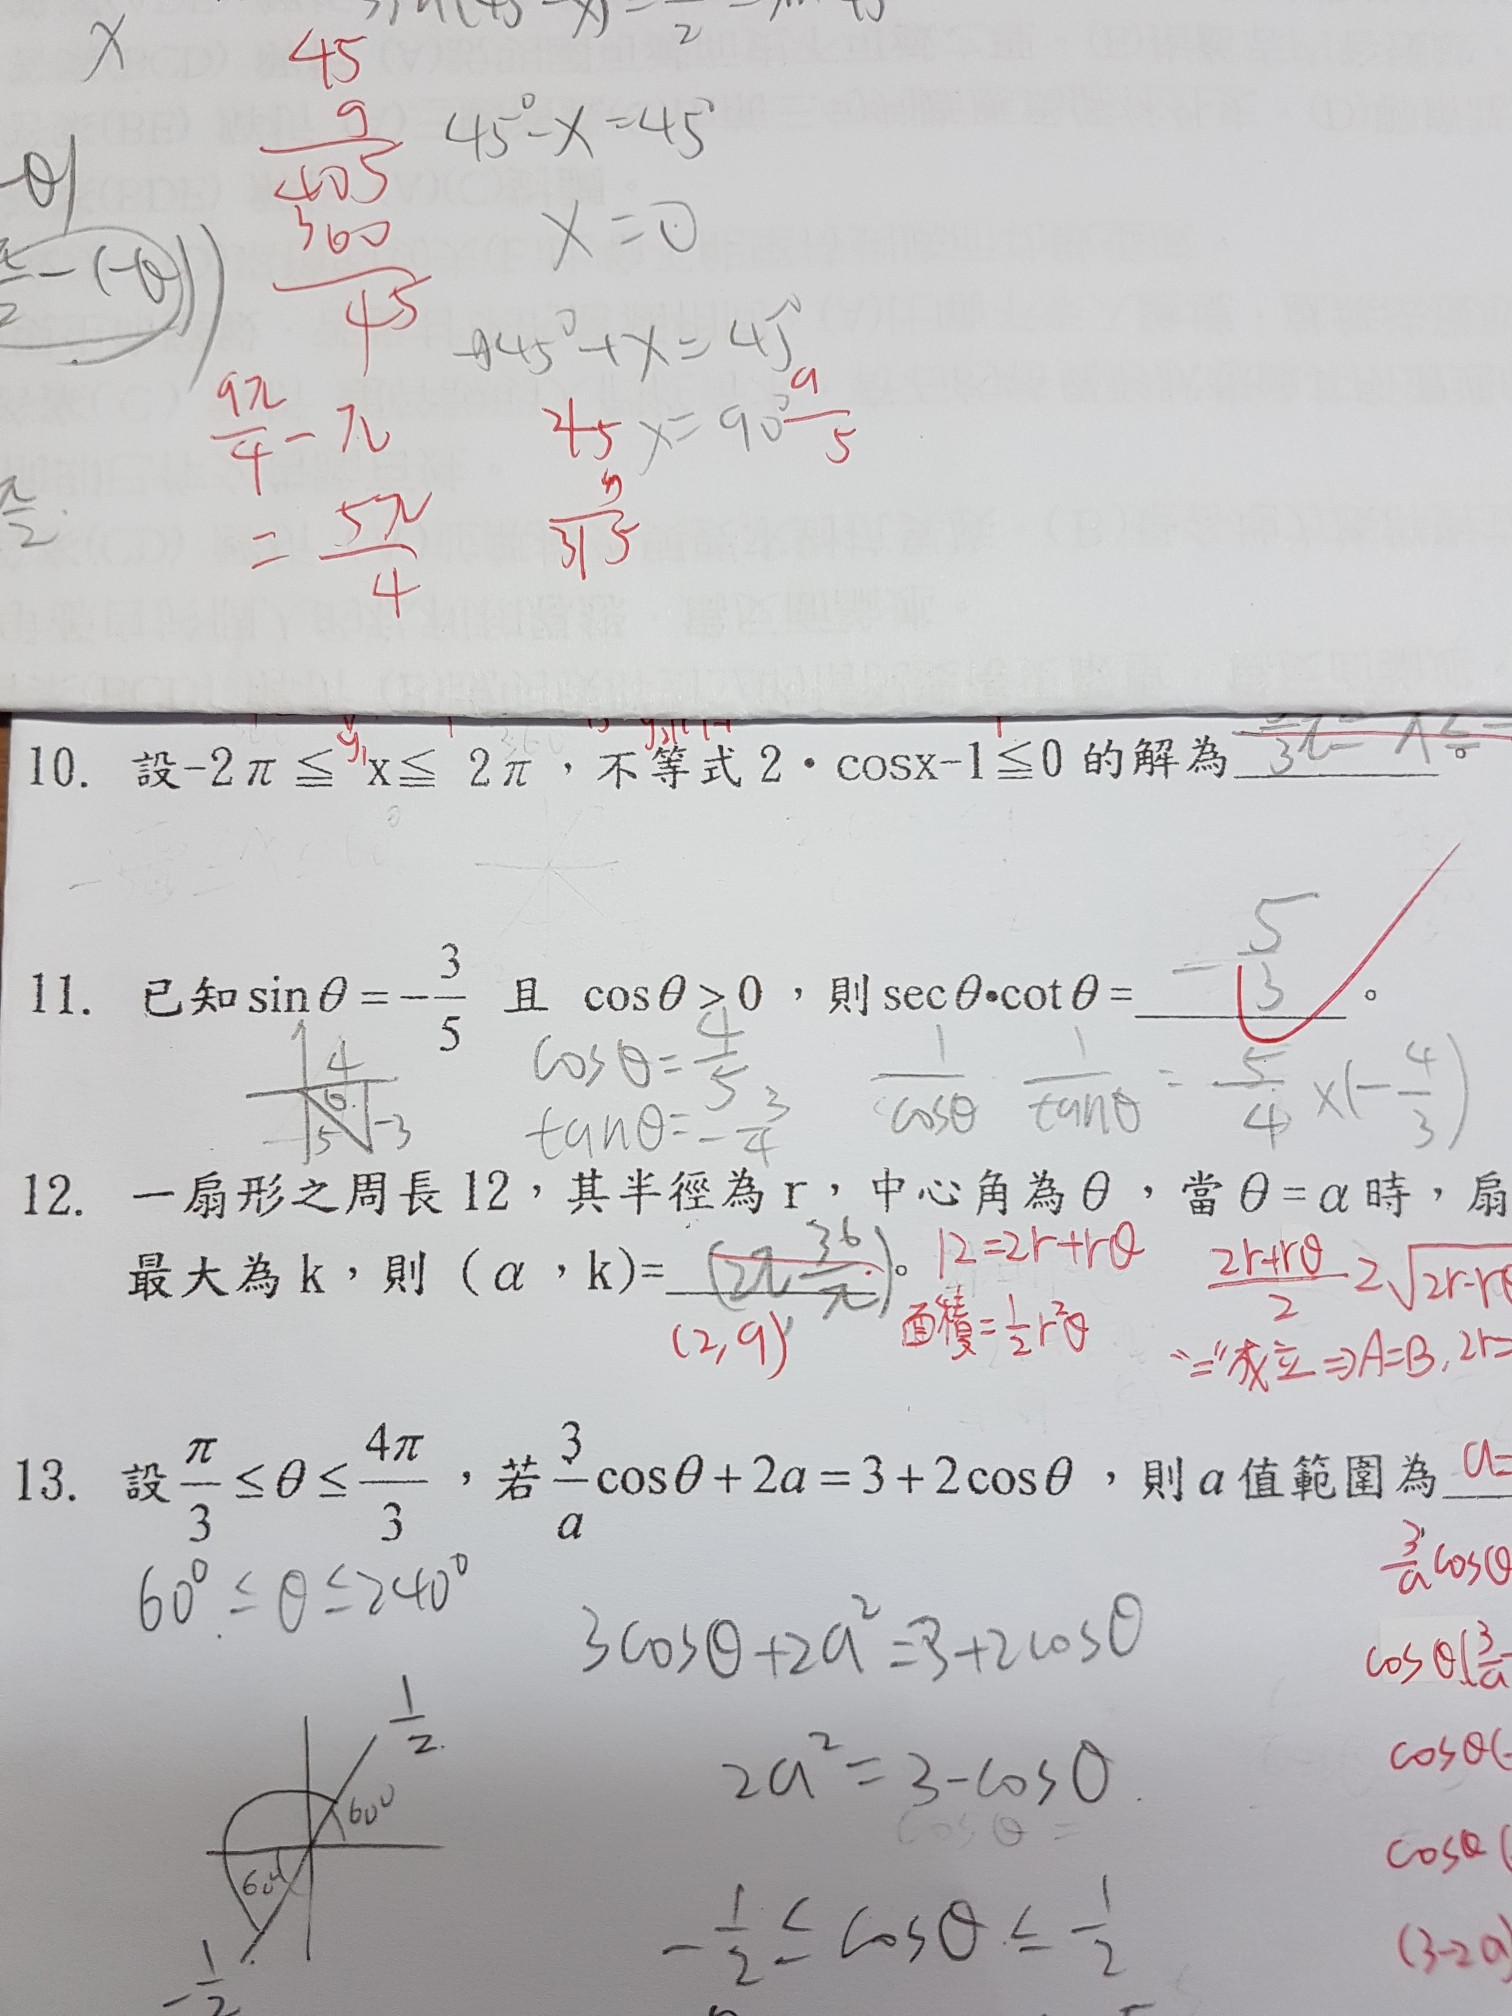 x
45
9
405
360
45
45°-x=45°
x=0
45°+x=45°
x=90°
9π/4-π
=5π/4
45
315
9/5
π/2
10. 設-2π≦x≦ 2π，不等式2·cosx-1≦0的解為
11. 已知sinθ=-3/5 且 cosθ>0，則secθ•cotθ= -5/3 。
4
5
-3
cosθ=4/5
tanθ=-3/4
1/cosθ 1/tanθ = 5/4 ×(-4/3)
12. 一扇形之周長12，其半徑為r，中心角為θ，當θ=α時，扇
最大為k，則（α，k)= (2π 36/π)。
(2,9)
12=2r+rθ
面積=1/2r²θ
2r+rθ/2≥√2r·rθ
"="成立⇒A=B,2r=
13. 設π/3≤θ≤4π/3，若3/a cosθ+2a=3+2cosθ，則a值範圍為 a=
60°≤θ≤240°
3cosθ+2a²=3+2cosθ
2a²=3-cosθ
cosθ=
-1/2≤cosθ≤1/2
1/2
60°
60°
-1/2
3/a cosθ
cosθ(3/a
cosθ(
cosθ(
(3-2a)